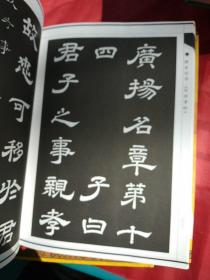 廣揚名章第十
四 子曰
君子之事親孝
故忠可移於君